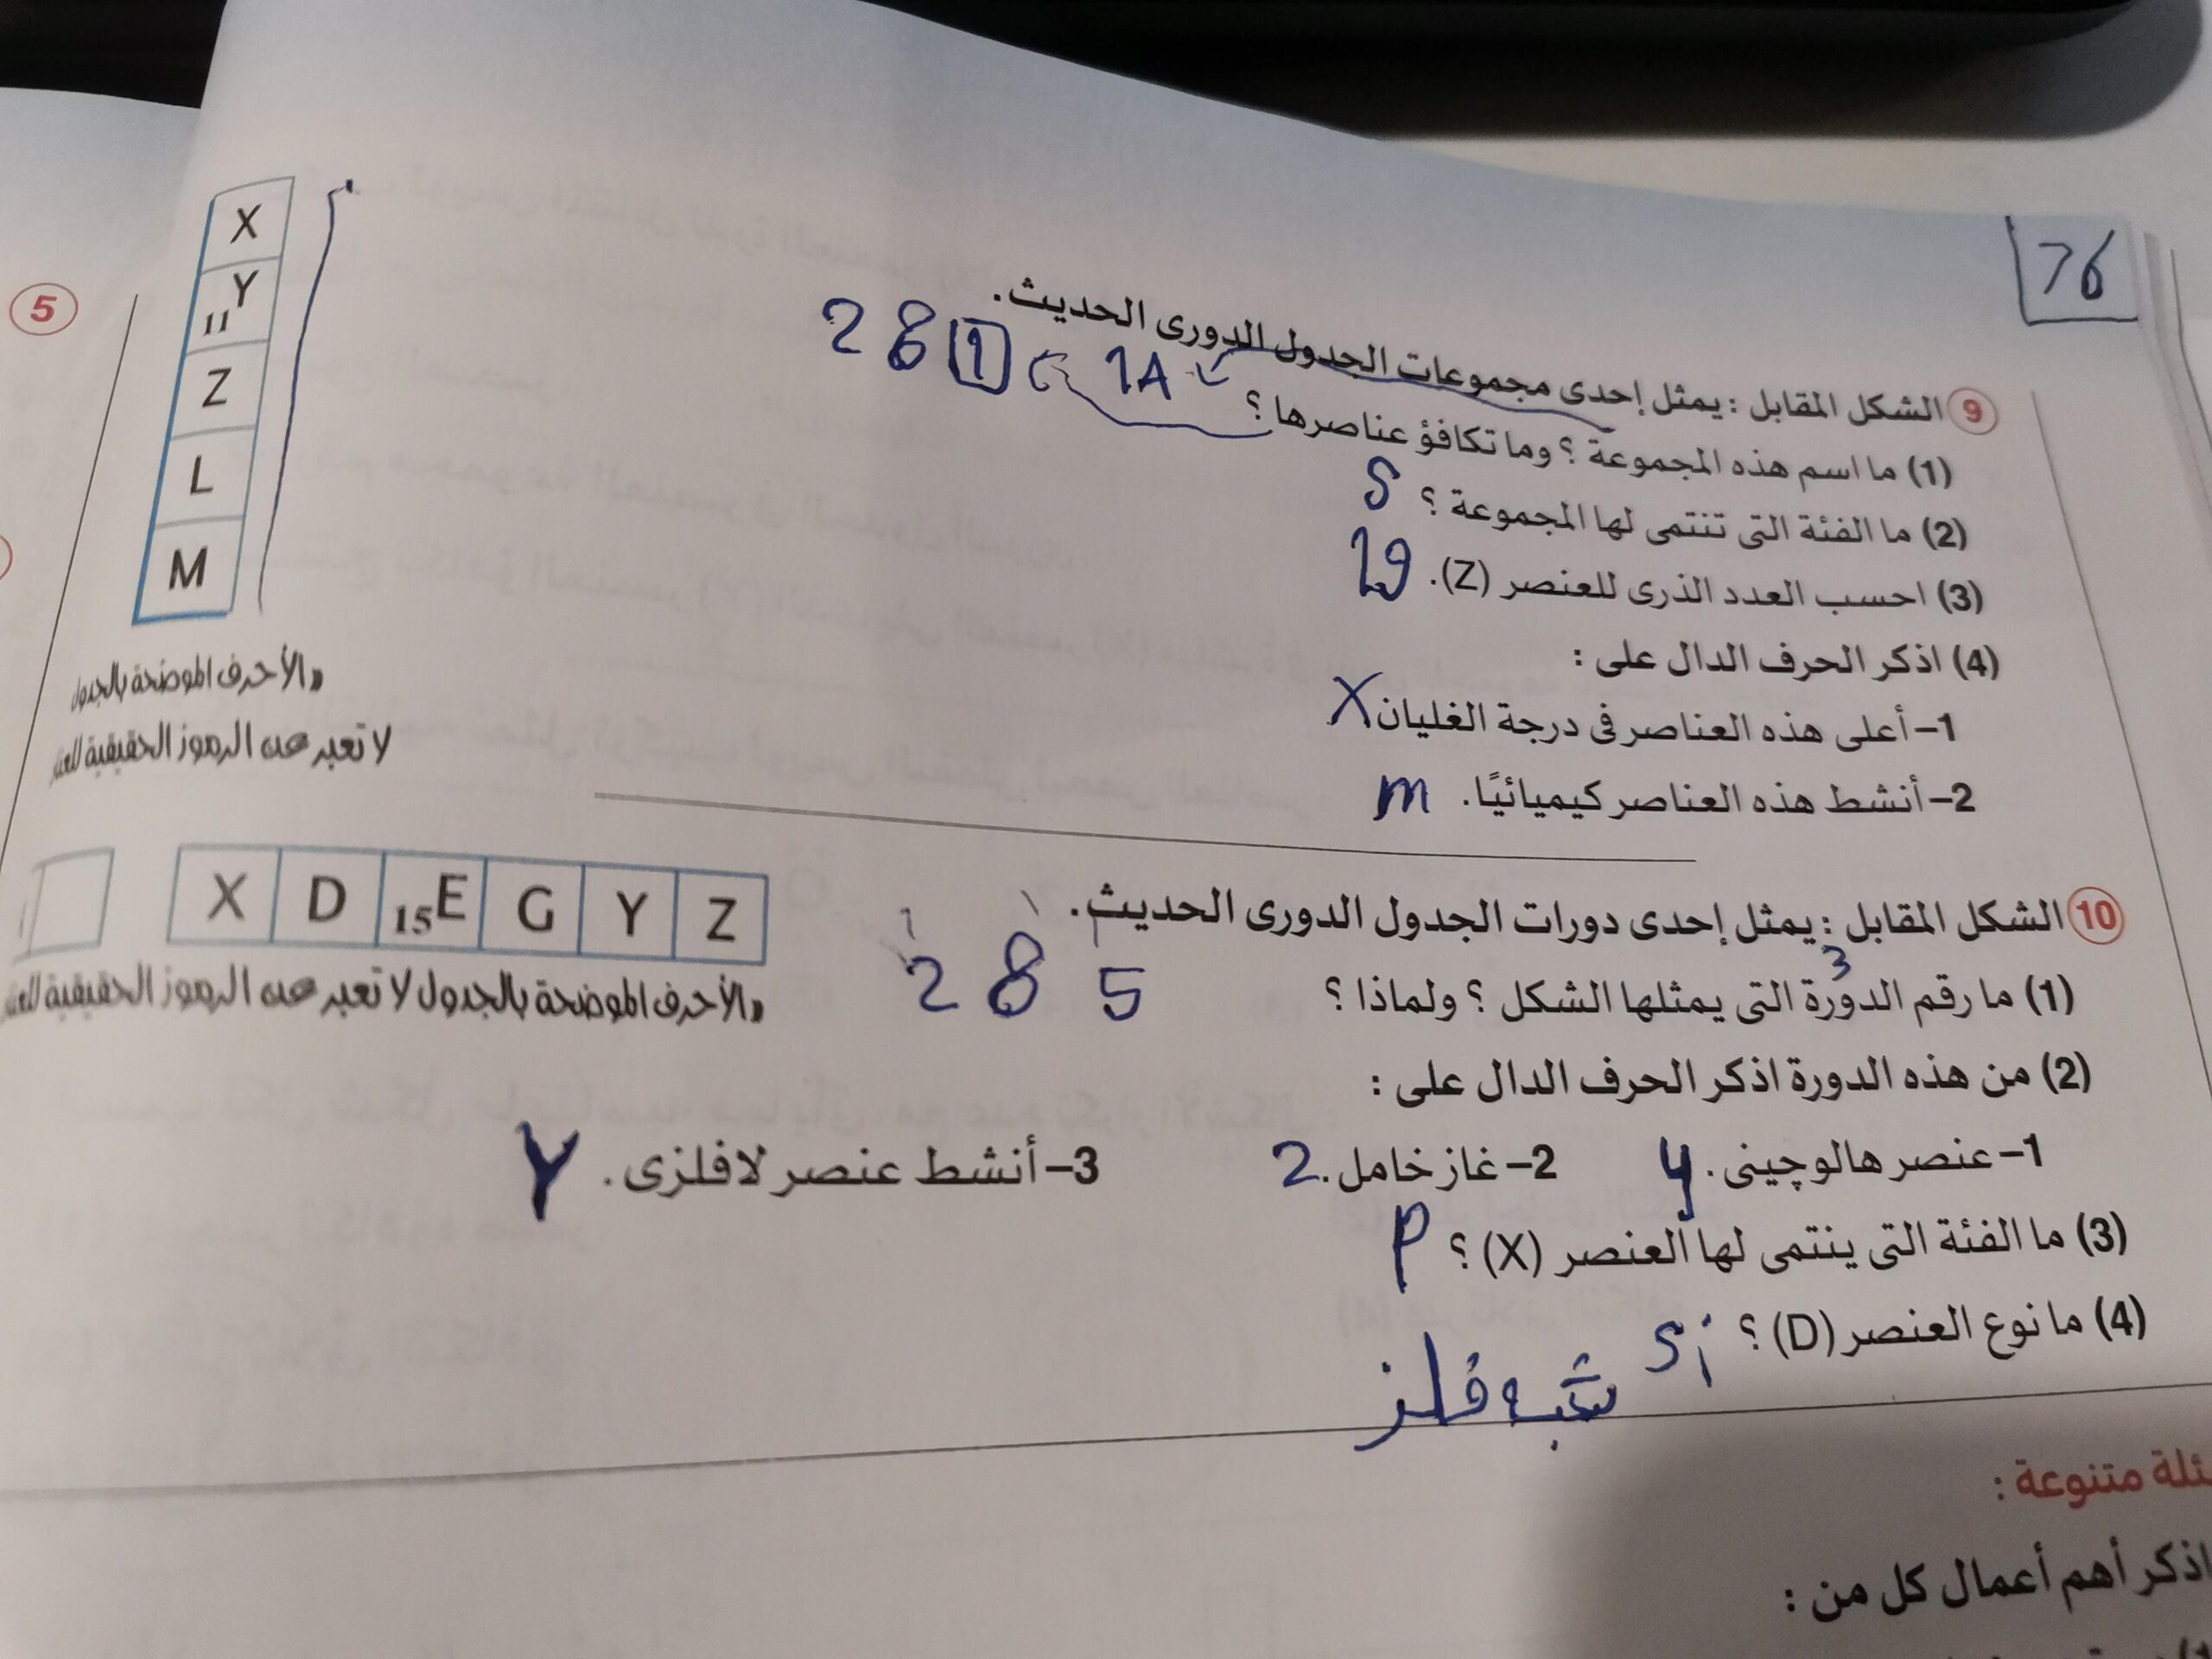 76
9 الشكل المقابل : يمثل إحدى مجموعات الجدول الدورى الحديث.
(1) ما اسم هذه المجموعة ؟ وما تكافؤ عناصرها ؟ 1A 2 8 1
(2) ما الفئة التى تنتمى لها المجموعة ؟ S
(3) احسب العدد الذرى للعنصر (Z). 19
(4) اذكر الحرف الدال على :
1- أعلى هذه العناصر فى درجة الغليان X
2- أنشط هذه العناصر كيميائيًا. m
X
11Y
Z
L
M
«الأحرف الموضحة بالجدول
لا تعبر عن الرموز الحقيقية
5
10 الشكل المقابل : يمثل إحدى دورات الجدول الدورى الحديث.
(1) ما رقم الدورة التى يمثلها الشكل ؟ ولماذا ؟ 3
2 8 5
(2) من هذه الدورة اذكر الحرف الدال على :
1- عنصر هالوچينى. y 2- غاز خامل. 2 3- أنشط عنصر لافلزى. Y
(3) ما الفئة التى ينتمى لها العنصر (X) ؟ P
(4) ما نوع العنصر (D) ؟ Si
شبه فلز
X D 15E G Y Z
«الأحرف الموضحة بالجدول لا تعبر عن الرموز الحقيقية
متنوعة :
اذكر أهم أعمال كل من :